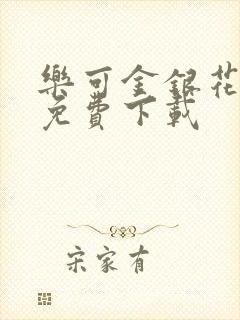 樂可金銀花
免費下載
宋家有